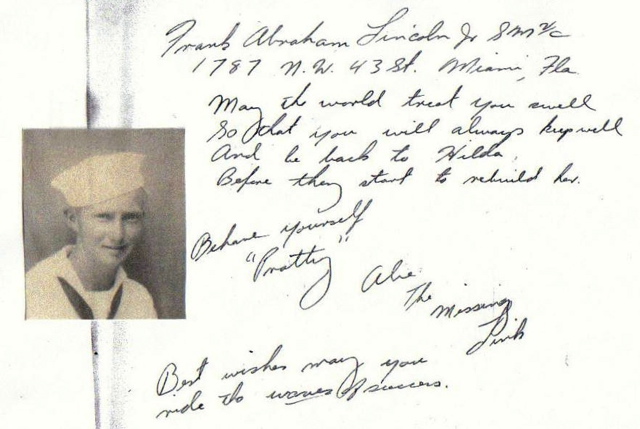 Frank Abraham Lincoln Jr SM 2/c
1787 N.W. 43 St. Miami, Fla
May the world treat you swell
So that you will always keep well
And be back to Hilda,
Before they start to rebuild her.
Behave yourself
"Pratty"
Abe
The Missing
Link
Best wishes may you
ride the waves of success.